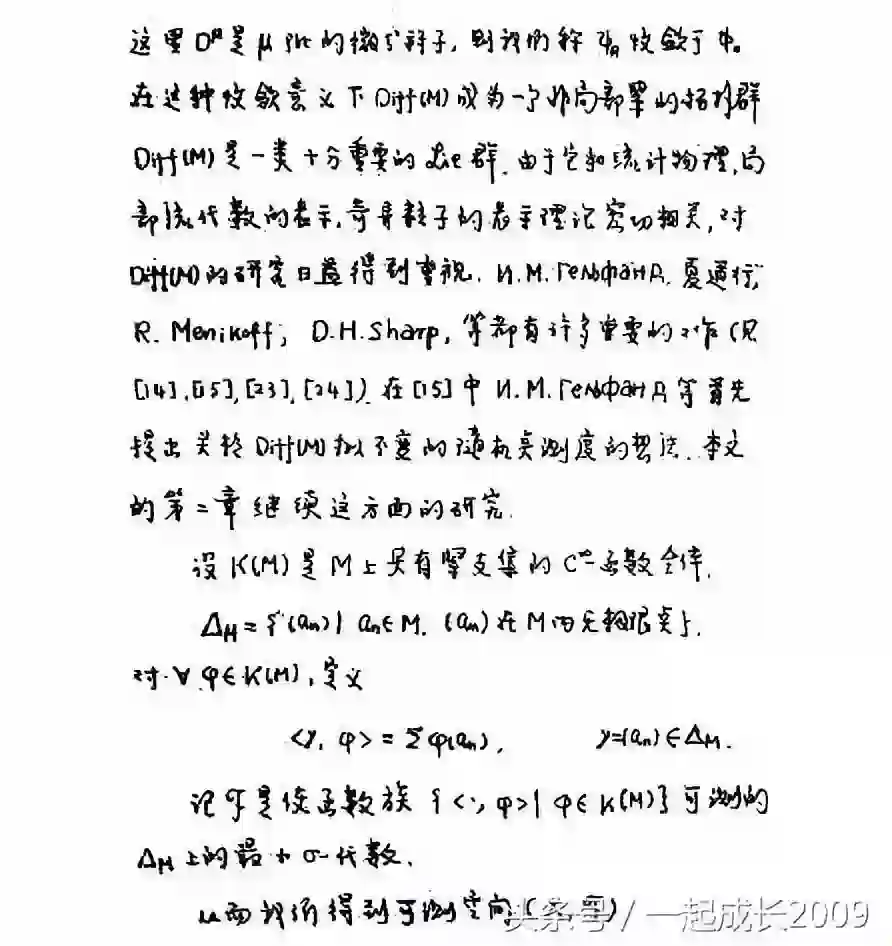 这里 D^μ 是 μ 阶的微分算子, 则我们称 φₙ 收敛于 φ。
在这种收敛意义下 Diff(M) 成为一个非局部紧的拓扑群
Diff(M) 是一类十分重要的 Lie 群. 由于它和统计物理, 局
部流代数的表示, 奇异粒子的表示理论密切相关, 对
Diff(M) 的研究日益得到重视. И.М.Гельфанд, 夏道行,
R. Menikoff; D.H.Sharp, 等都有许多重要的工作 (见
[14], [15], [23], [24]). 在 [15] 中 И.М.Гельфанд 等首先
提出关于 Diff(M) 拟不变的随机点测度的想法. 本文
的第二章继续这方面的研究.
设 K(M) 是 M 上具有紧支集的 C^∞-函数全体,
Δ_M = {(aₙ) | aₙ∈M. (aₙ) 在 M 内无极限点}.
对 ∀ φ∈K(M), 定义
<γ, φ> = Σφ(aₙ), γ=(aₙ)∈Δ_M.
记 是使函数族 {<·, φ> | φ∈K(M)} 可测的
Δ_M 上的最小 σ-代数.
从而我们得到可测空间 (
头条号 / 一起成长2009